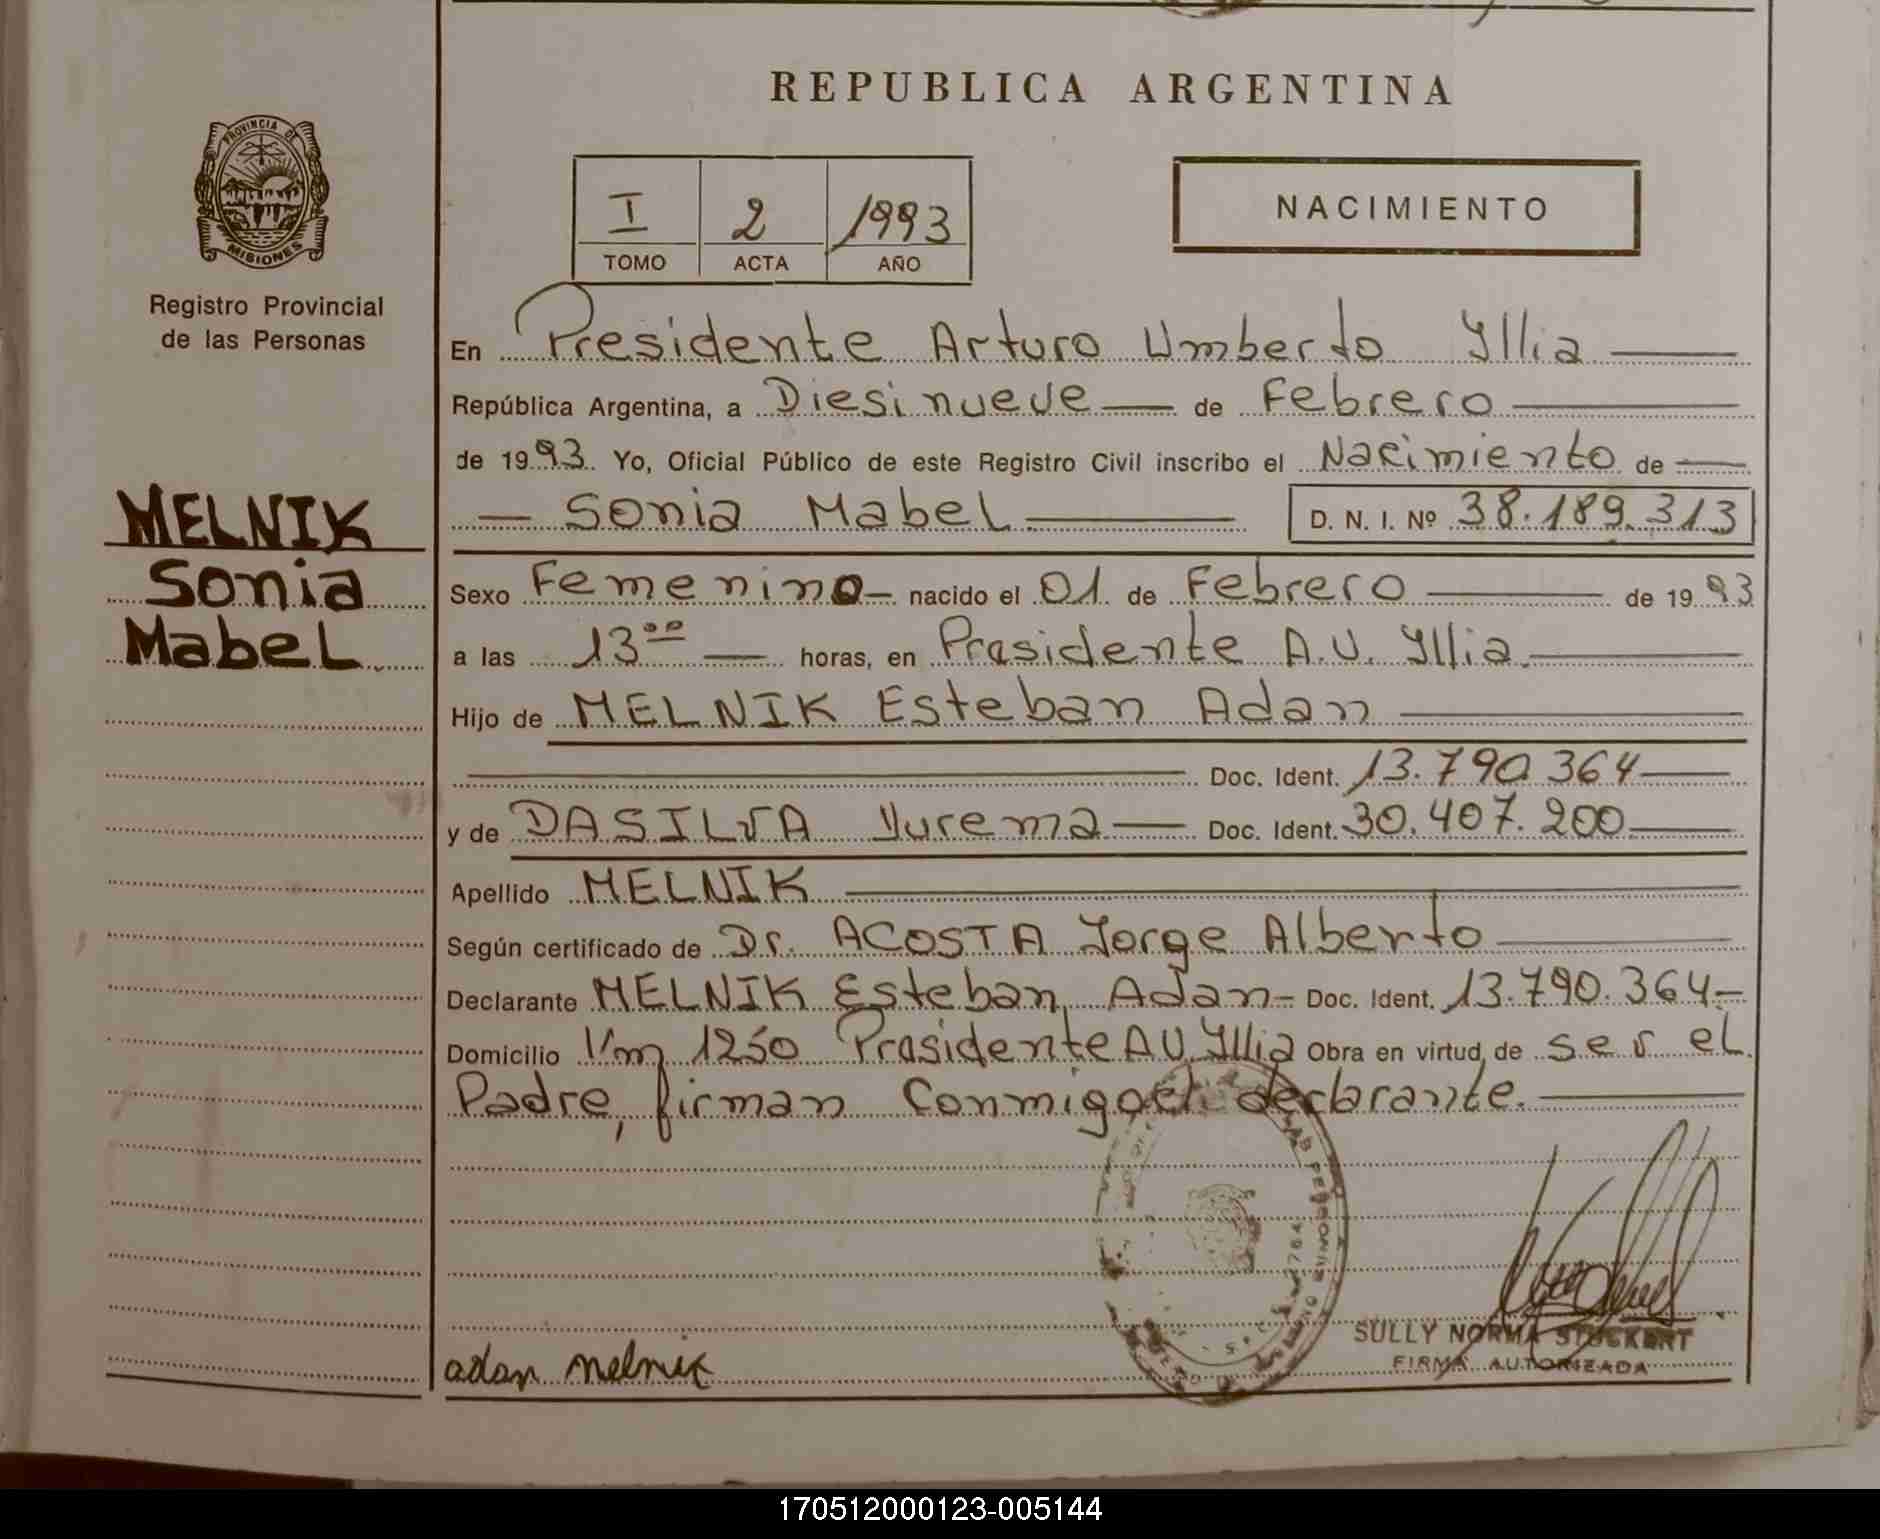 REPUBLICA ARGENTINA
PROVINCIA DE
MISIONES
Registro Provincial
de las Personas
I 2 1993
TOMO ACTA AÑO
NACIMIENTO
MELNIK
Sonia
Mabel
En Presidente Arturo Umberto Yllia
República Argentina, a Diesinueve de Febrero
de 1993. Yo, Oficial Público de este Registro Civil inscribo el Nacimiento de
Sonia Mabel D. N. I. Nº 38.189.313
Sexo Femenino nacido el 01 de Febrero de 1993
a las 13ºº horas, en Presidente A.U. Yllia.
Hijo de MELNIK Esteban Adan
Doc. Ident. 13.790.364
y de DASILVA Yurema Doc. Ident. 30.407.200
Apellido MELNIK
Según certificado de Dr. ACOSTA Jorge Alberto
Declarante MELNIK Esteban Adan Doc. Ident. 13.790.364
Domicilio Km 1250 Presidente A U. Yllia Obra en virtud de ser el
Padre, firman Conmigo el declarante.
SULLY NORMA STOCKERT
FIRMA AUTORIZADA
adan melnik
170512000123-005144